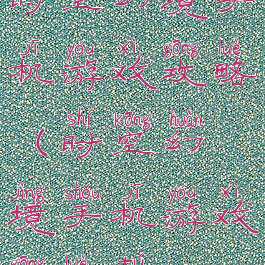 时空幻境手
jī yóu xì gōng lüè
机游戏攻略
shí kōng huàn
(时空幻
jìng shǒu jī yóu xì
境手机游戏
gōng lüè